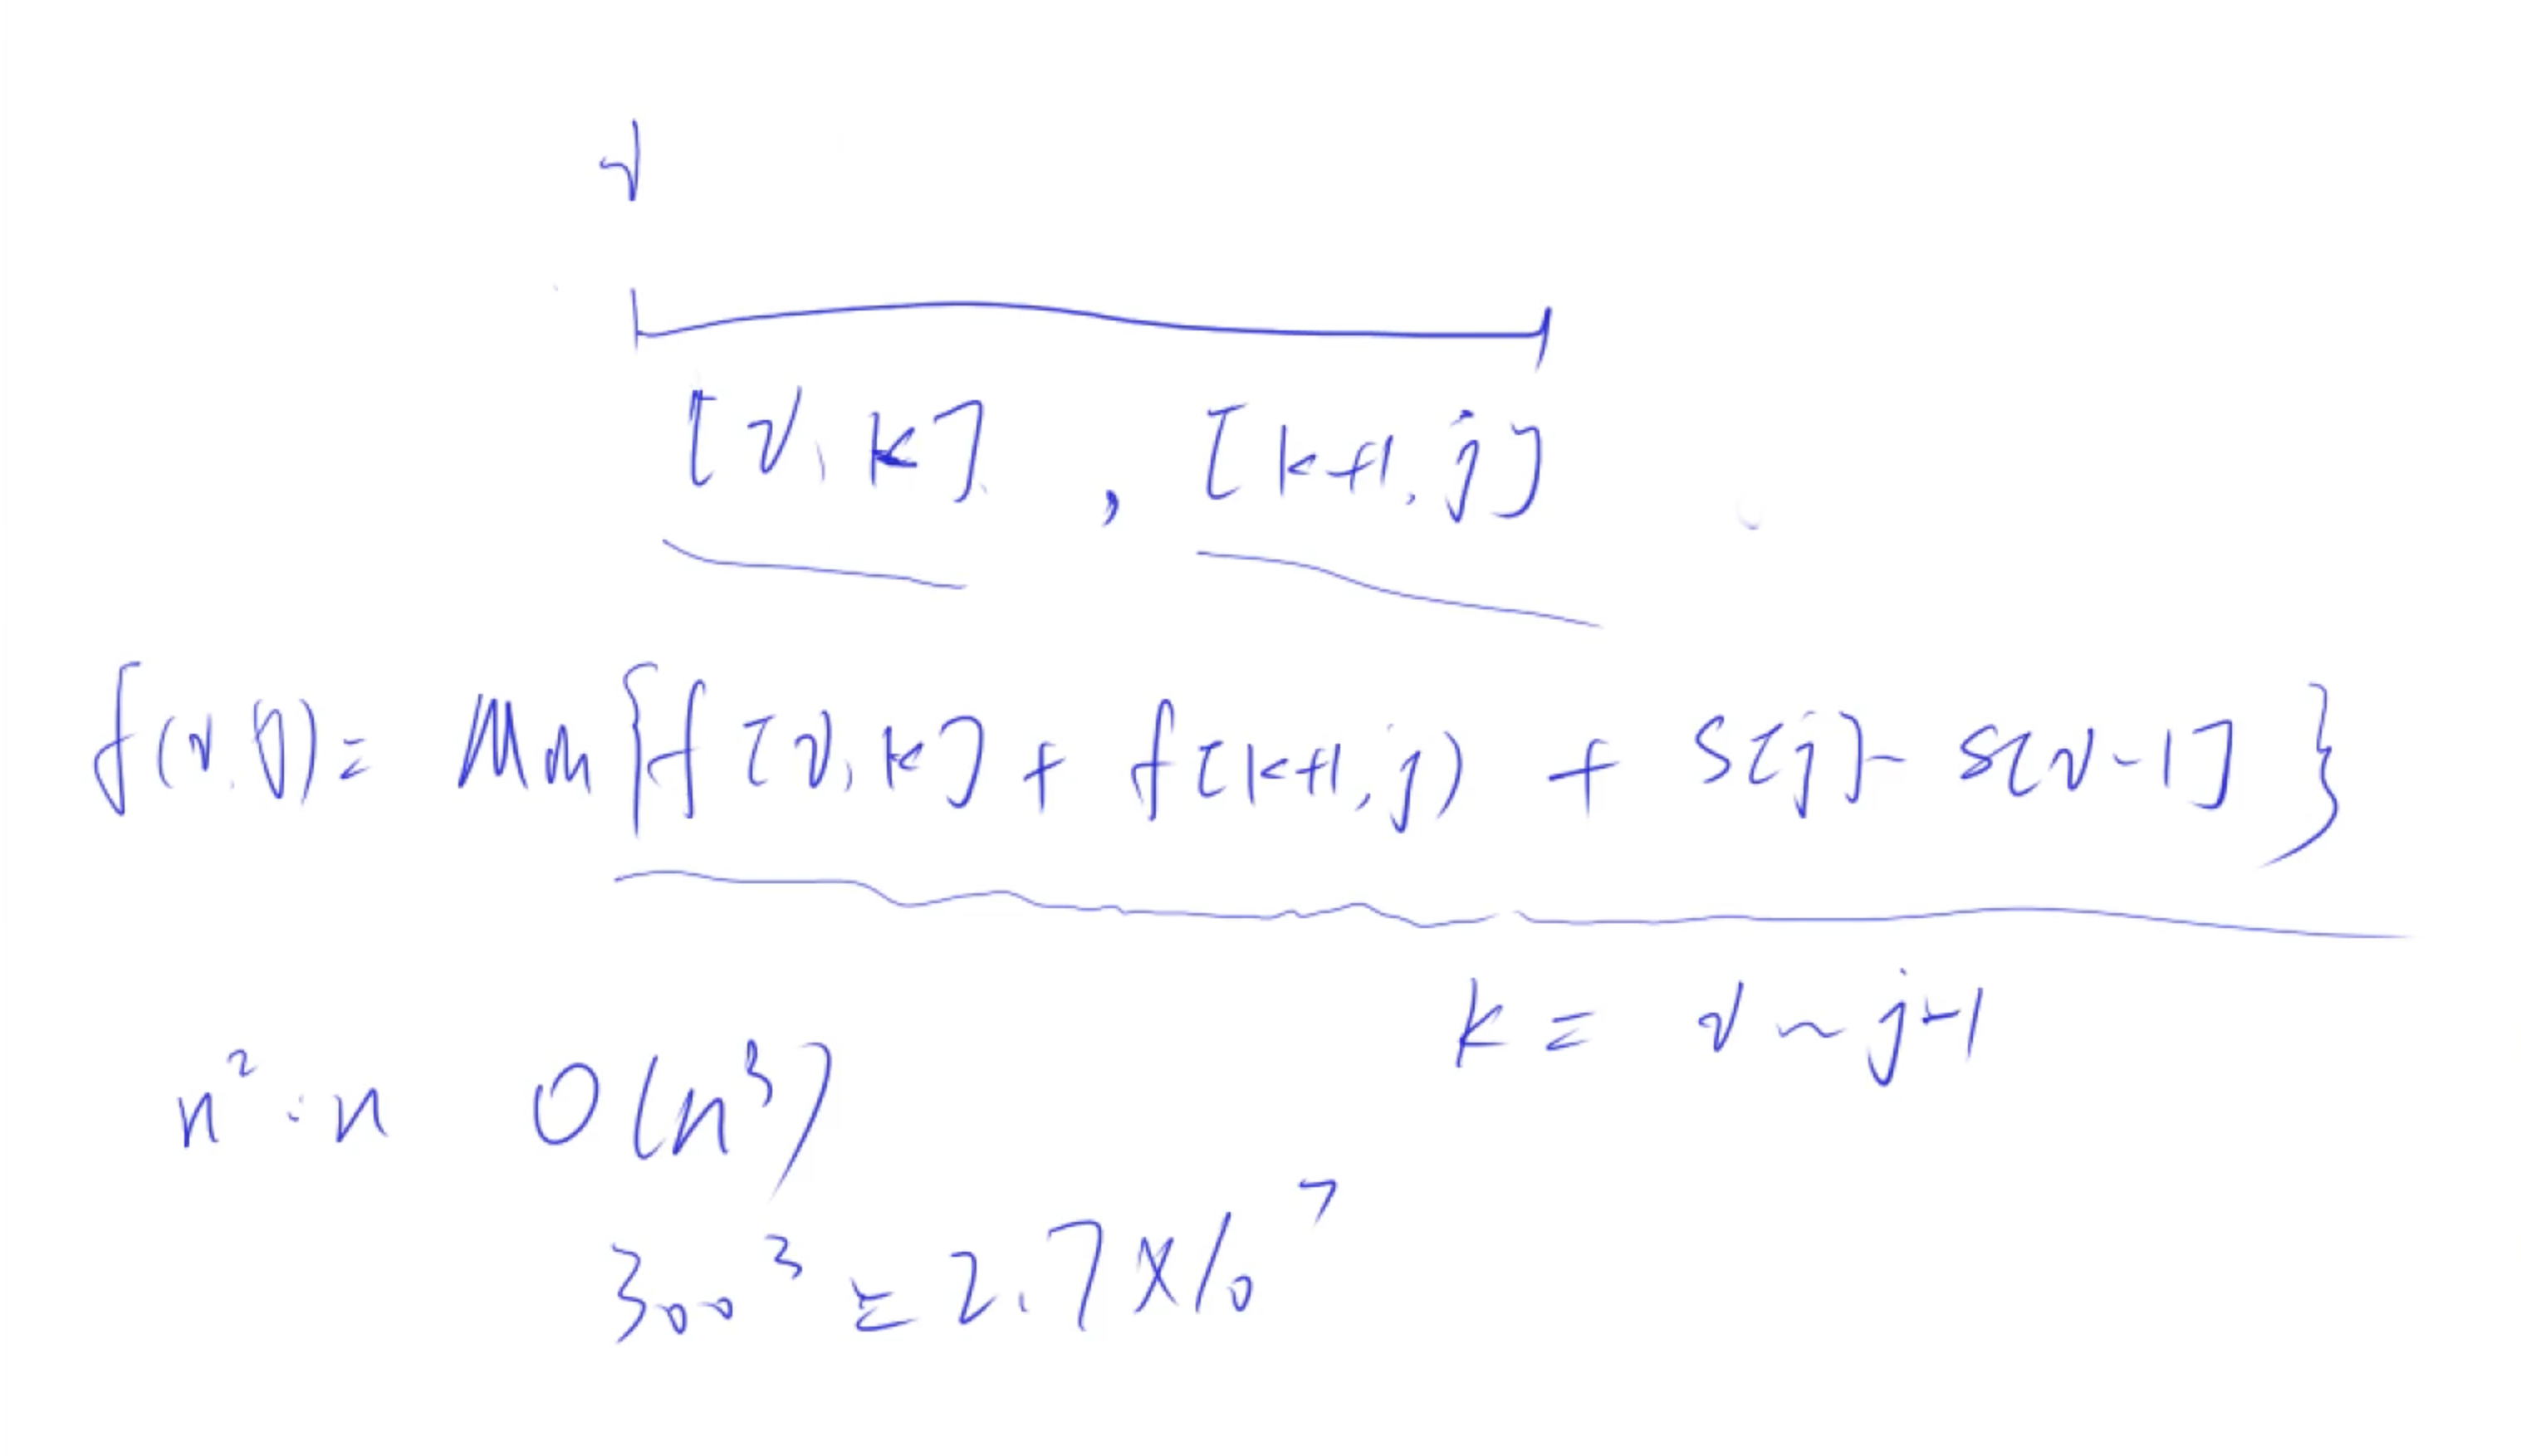 i
[i, k] , [k+1, j]
f(i, j) = Min{f[i, k] + f[k+1, j) + s[j] - s[i-1]}
k = i ~ j-1
n² · n O(n³)
300³ = 2.7×10⁷